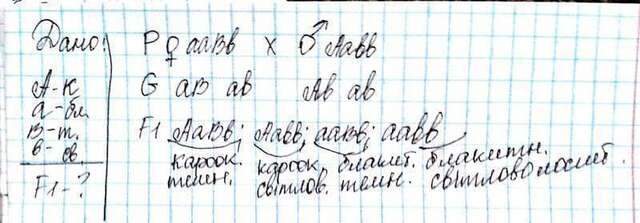 Дано:
А-к
а-бл.
В-т.
в-св
F1-?
P ♀ ааВв × ♂ Аавв
G аВ ав Ав ав
F1 АаВв; Аавв; ааВв; аавв
кароок. кароок. блакит. блакитн.
темн. світлов. темн. світловолосий.